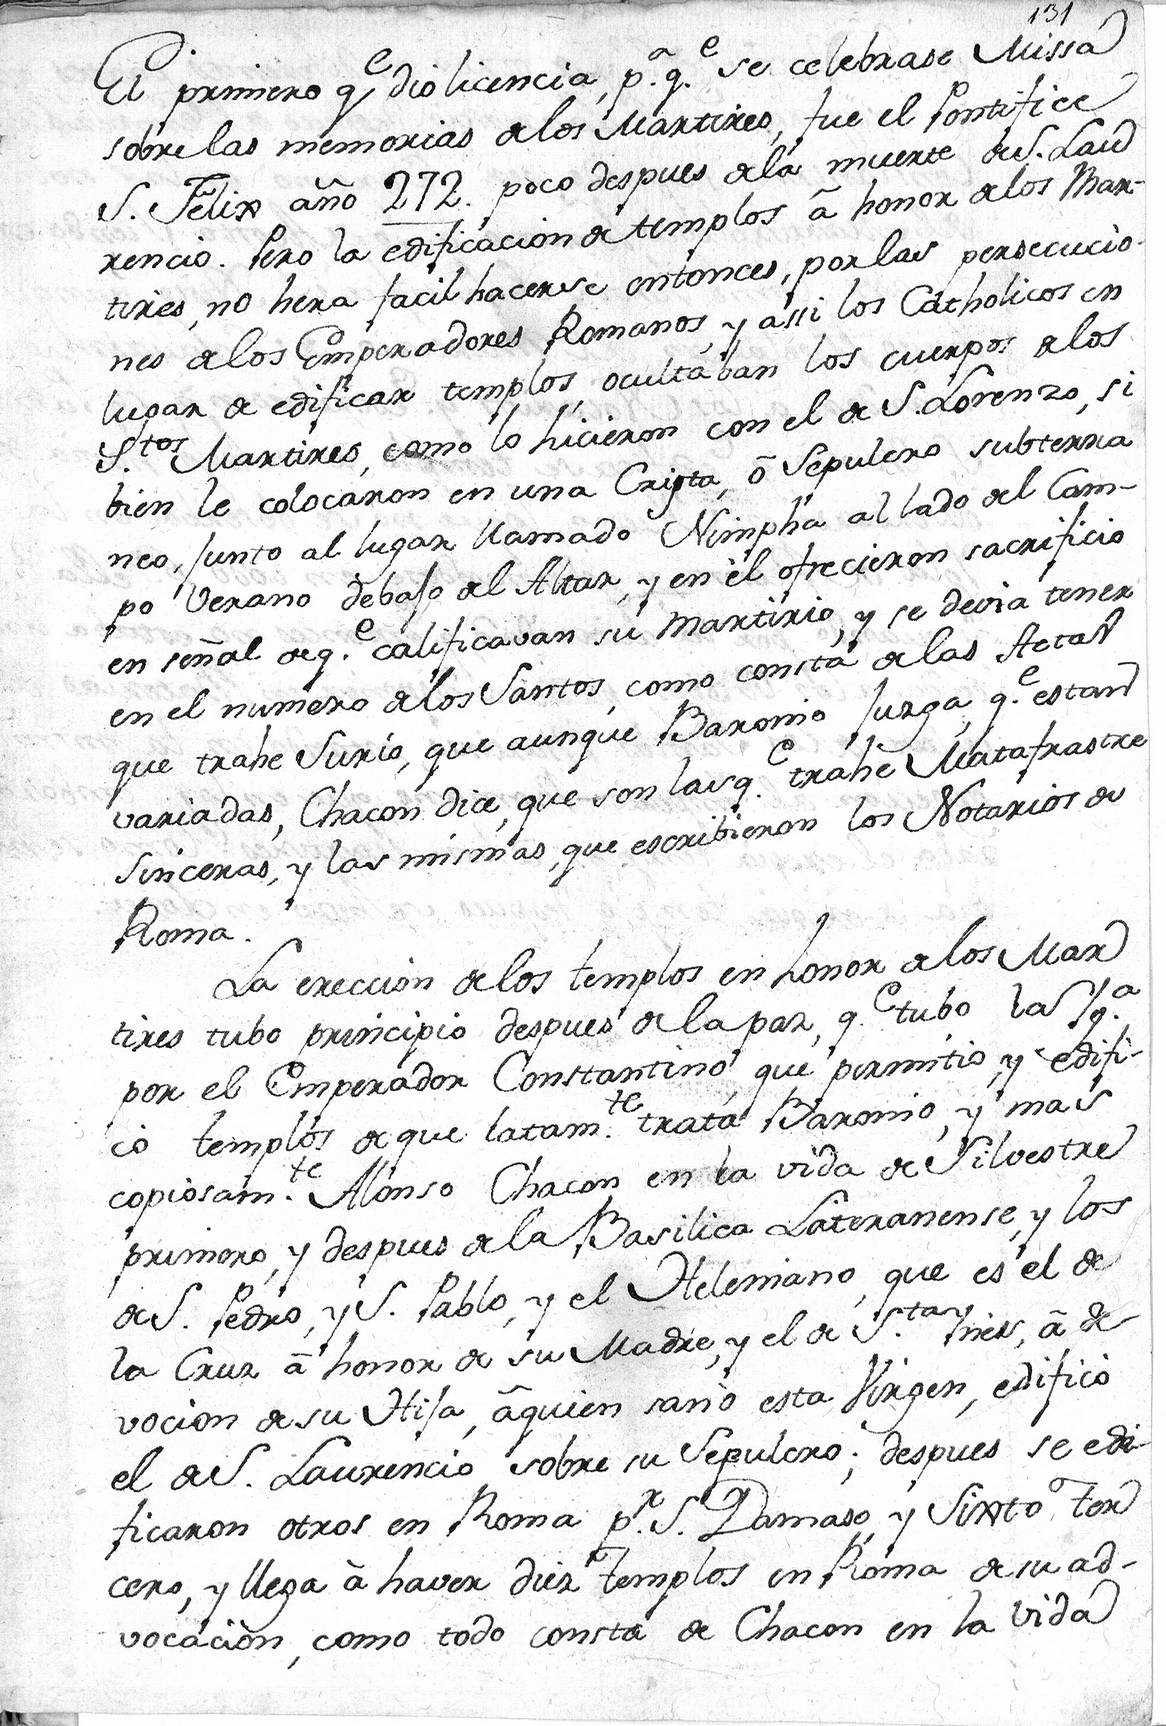 131
El primero q.e dio licencia, p.a q.e se celebrase Missa
sobre las memorias de los Martires, fue el Pontifice
S. Felix año 272. poco despues de la muerte de S. Lau
rencio. Pero la edificacion de templos â honor de los Mar-
tires, no hera facil hacerse entonces, por las persecucio-
nes de los Emperadores Romanos, y assi los Catholicos en
lugar de edificar templos, ocultaban los cuerpos de los
S.tos Martires, como lo hicieron con el de S. Lorenzo, si
bien le colocaron en una Cripta, ô Sepulcro subterra
neo, junto al lugar llamado Nimpha al lado del Cam-
po Verano debajo del Altar, y en èl ofrecieron sacrificio
en señal de q.e calificavan su martirio, y se devia tener
en el numero de los Santos, como consta de las Actas
que trahe Surio, que aunque Baronio Juzga, q.e estan
variadas, Chacon dice, que son las q.e trahe Matafrastre
sinceras, y las mismas, que escribieron los Notarios de
Roma.
La ereccion de los templos en honor de los Mar
tires tubo principio despues de la paz, q.e tubo la Ig.a
por el Emperador Constantino que permitio, y edifi-
cò templos de que latam.te trata Baronio, y mas
copiosam.te Alonso Chacon en la vida de Silvestre
primero, y despues de la Basilica Lateranense, y los
de S. Pedro, y S. Pablo, y el Heleniano, que es el de
la Cruz â honor de su Madre, y el de S.ta Ynes, â de
vocion de su Hija, âquien sanò esta Virgen, edificò
el de S. Laurencio sobre su Sepulcro; despues se edi
ficaron otros en Roma p.r S. Damaso, y Sixto Ter
cero, y llega à haver diez Templos en Roma de su ad-
vocaciòn, como todo consta de Chacon en la vida